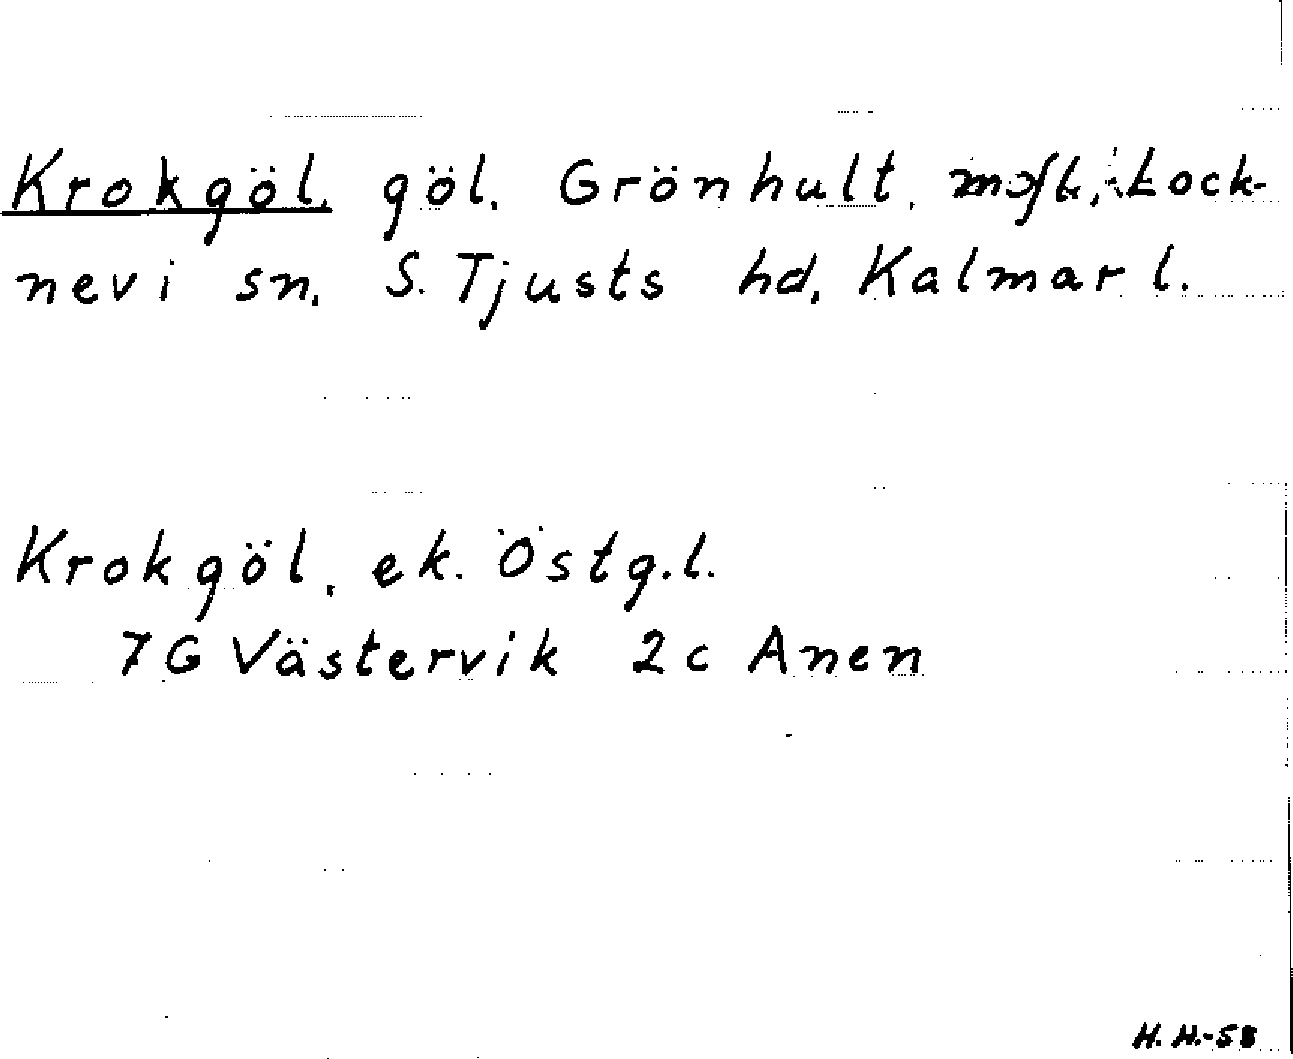 Krokgöl, göl, Grönhult, Lock-
nevi sn, S. Tjusts hd, Kalmar l.
Krokgöl, ek. Östg.l.
7G Västervik 2c Anen
H. H.-58